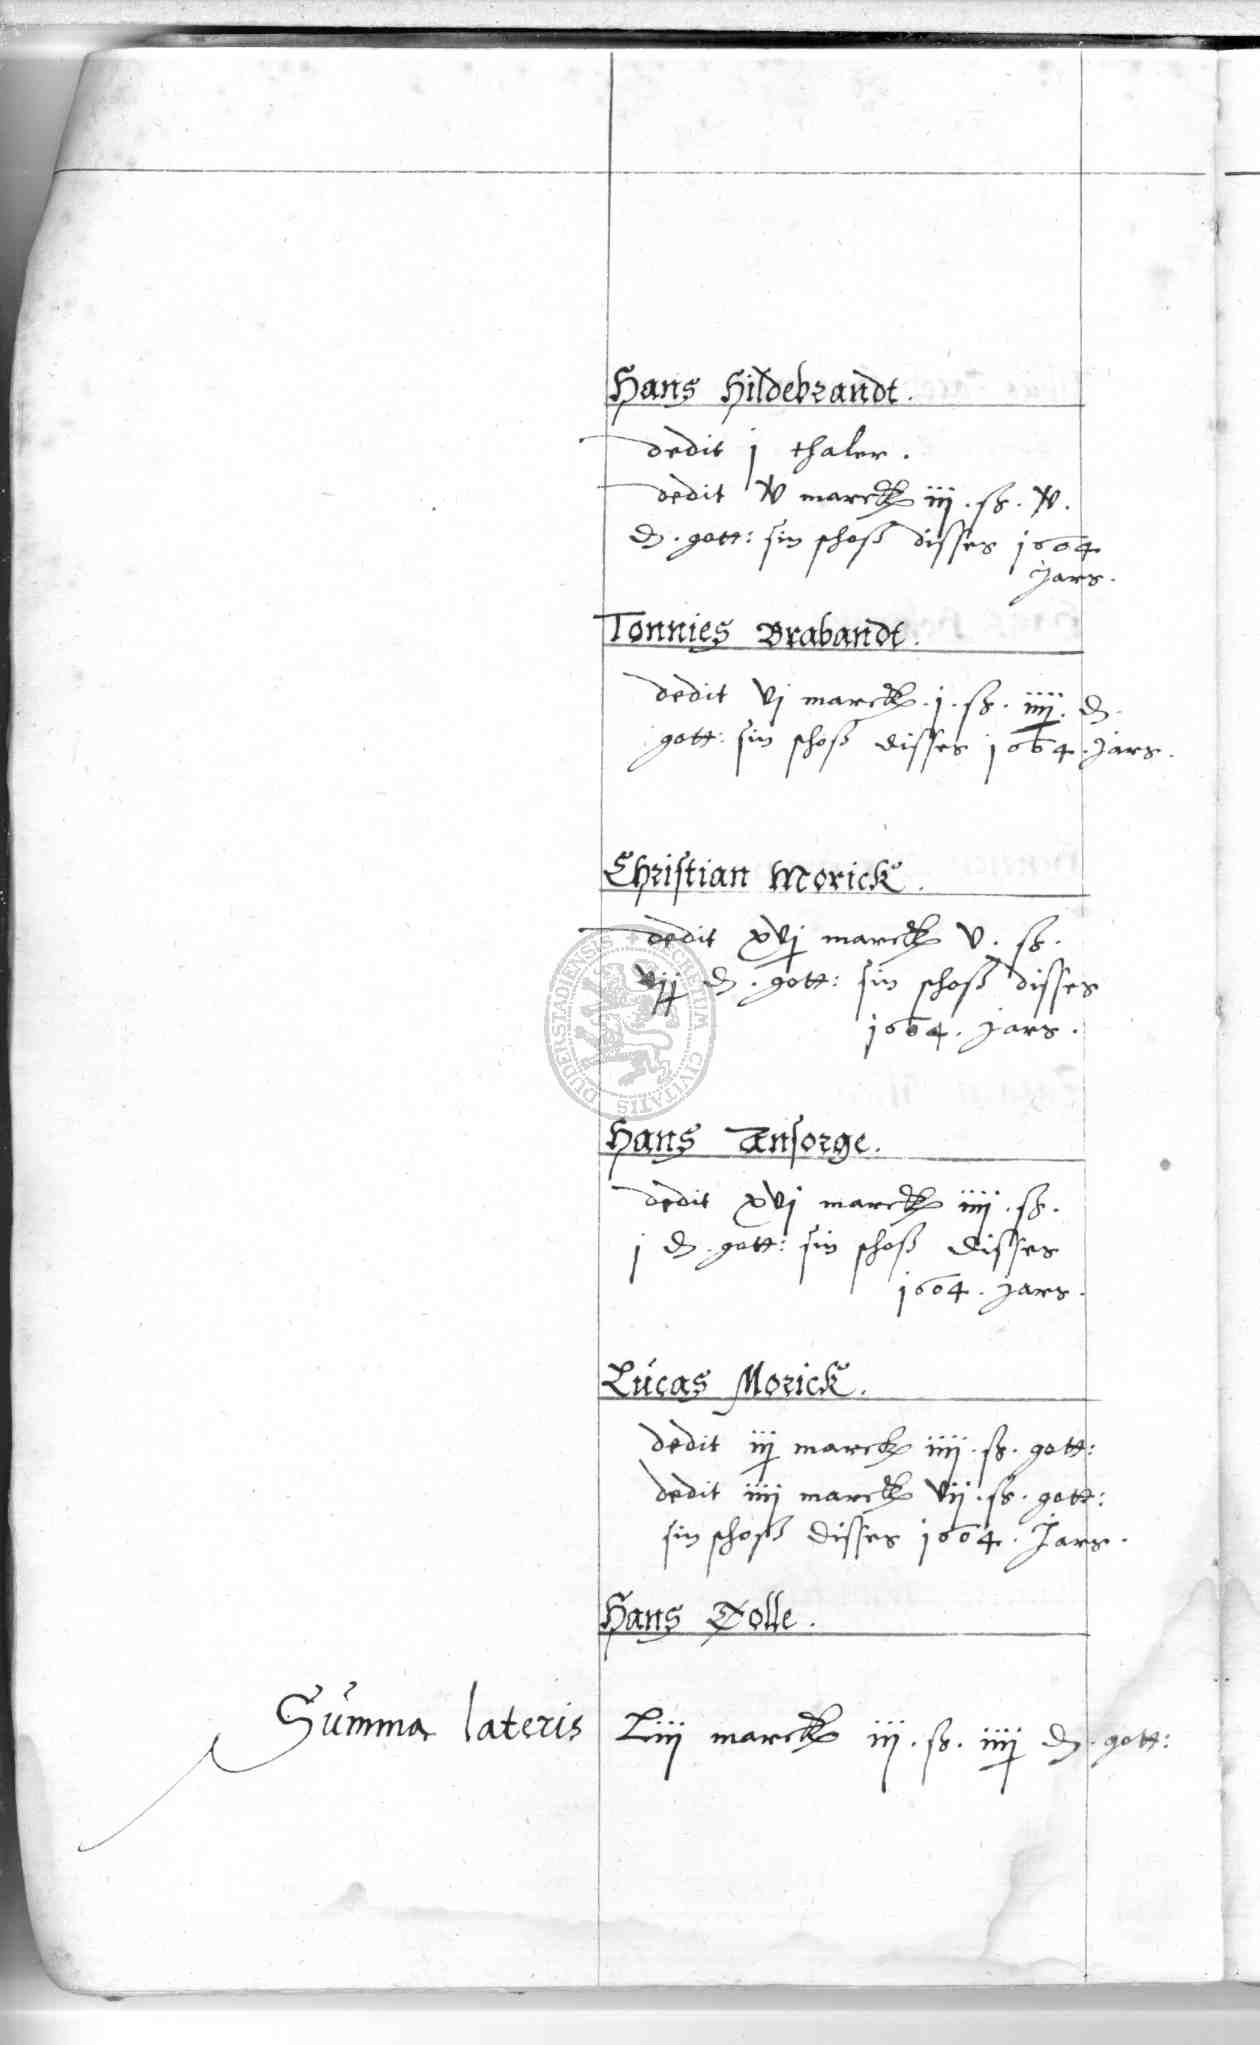 Hans Hildebrandt.
dedit j thaler.
dedit v marck iij. ß. v.
₰. gott: sin schoß disses 1604
Jars.
Tonnies Brabandt.
dedit vj marck. j. ß. iiij. ₰.
gott: sin schoß disses 1604. Jars.
Christian Morick.
dedit xvj marck v. ß.
₰. gott: sin schoß disses
1604. Jars.
Hans Ansorge.
dedit xvj marck iiij. ß.
j ₰. gott: sin schoß disses
1604. Jars.
Lucas Morick.
dedit iij marck iiij. ß. gott:
dedit iiij marck vij. ß. gott:
sin schoß disses 1604. Jars.
Hans Dolle.
Summa lateris Liij marck iij. ß. iiij ₰. gott:
SECRETUM CIVITATIS DUDERSTADIENSIS